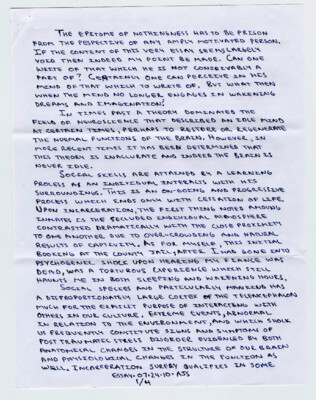 THE EPITOME OF NOTHINGNESS HAS TO BE PRISON
FROM THE PESPECTIVE OF ANY AMPLY MOTIVATED PERSON.
IF THE CONTENT OF THIS VERY ESSAY SEEMS LARGELY
VOID THEN INDEED MY POINT BE MADE. CAN ONE
WRITE OF THAT WHICH HE IS NOT CONCEIVABLY A
PART OF? CERTAINLY ONE CAN PERCEIVE IN HIS
MIND OF THAT WHICH TO WRITE OF. BUT WHAT THEN
WHEN THE MIND NO LONGER ENGAGES IN WAKENING
DREAMS AND IMAGINATION?
IN TIMES PAST A THEORY DOMINATED THE
FIELD OF NEUROSCIENCE THAT DESCRIBED AN IDLE MIND
AT CERTAIN TIMES, PERHAPS TO RESTORE OR REGENERATE
THE NORMAL FUNCTIONS OF THE BRAIN. HOWEVER, IN
MORE RECENT TIMES IT HAS BEEN DETERMINED THAT
THIS THEORY IS INACCURATE AND INDEED THE BRAIN IS
NEVER IDLE.
SOCIAL SKILLS ARE ATTAINED BY A LEARNING
PROCESS AS AN INDIVIDUAL INTERACTS WITH HIS
SURROUNDINGS. THIS IS AN ON-GOING AND PROGRESSIVE
PROCESS WHICH ENDS ONLY WITH CESSATION OF LIFE.
UPON INCARCERATION, THE FIRST THING NOTED AMONG
INMATES IS THE SECLUDED INDIVIDUAL ATMOSPHERE
CONTRASTED DRAMATICALLY WITH THE CLOSE PROXIMITY
TO ONE ANOTHER DUE TO OVER-CROWDING AND NATURAL
RESULTS OF CAPTIVITY. AS FOR MYSELF, THIS INITIAL
BOOKING AT THE COUNTY JAIL, AFTER I HAD GONE INTO
PSYCHOGENIC SHOCK UPON HEARING MY FIANCE WAS
DEAD, WAS A TORTUROUS EXPERIENCE WHICH STILL
HAUNTS ME IN BOTH SLEEPING AND WAKENING HOURS.
SOCIAL SPECIES AND PARTICULARLY MANKIND HAS
A DISPROPORTIONATELY LARGE CORTEX OF THE TELENCEPHALON
MUCH FOR THE EXPLICIT PURPOSE OF INTERACTING WITH
OTHERS IN OUR CULTURE. EXTREME EVENTS, ABNORMAL
IN RELATION TO THE ENVIRONMENT, AND WHICH SHOCK
US FREQUENTLY CONSTITUTE SIGNS AND SYMPTOMS OF
POST TRAUMATIC STRESS DISORDER EVIDENCED BY BOTH
ANATOMICAL CHANGES IN THE STRUCTURE OF OUR BRAIN
AND PHYSIOLOGICAL CHANGES IN THE FUNCTION AS
WELL. INCARCERATION SURELY QUALIFIES IN SOME
ESSAY-07-24-10-AJS
1/4